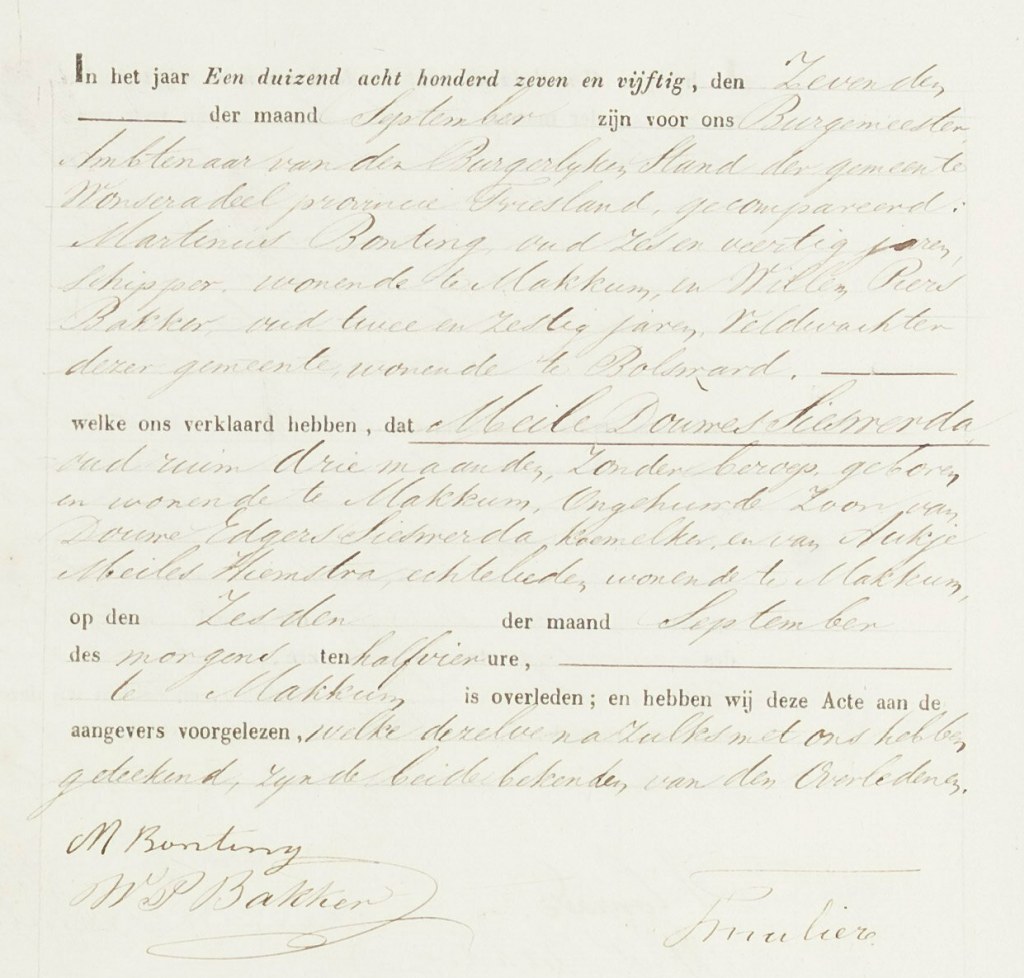 In het jaar Een duizend acht honderd zeven en vijftig, den Zevenden
der maand September zijn voor ons Burgemeester
Ambtenaar van den Burgerlyken Stand der gemeente
Wonseradeel provincie Friesland, gecompareerd:
Martinus Bonting, oud zes en veertig jaren,
schipper, wonende te Makkum, en Willem Piers
Bakker, oud twee en zestig jaren, Veldwachter
dezer gemeente, wonende te Bolsward.
welke ons verklaard hebben, dat Meile Douwes Sieswerda,
oud ruim drie maanden, zonder beroep, geboren
en wonende te Makkum, Ongehuwde Zoon van
Douwe Edgers Sieswerda, koemelker, en van Aukje
Meiles Hiemstra, echtelieden wonende te Makkum,
op den Zesden der maand September
des morgens ten half vier ure,
te Makkum is overleden; en hebben wij deze Acte aan de
aangevers voorgelezen, welke dezelve na zulks met ons hebben
geteekend, zynde beide bekenden van den Overledenen.
M Bonting
W P Bakker